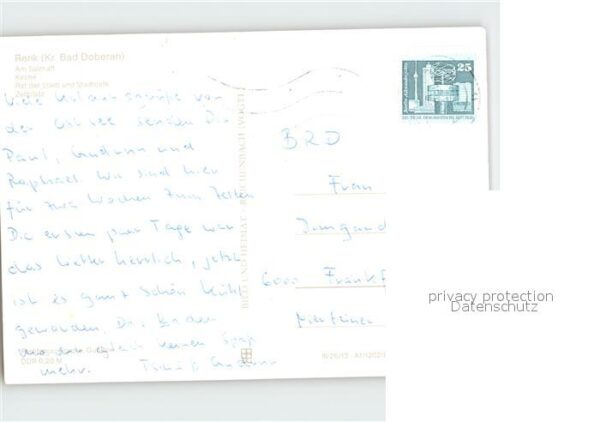 Rerik (Kr. Bad Doberan)
Am Salzhaff
Kirche
Rat der Stadt und Stadtcafé
Zeltplatz
Viele Urlaubsgrüße von
der Ostsee senden Dir
Paul, Gudrun und
Raphael. Wir sind hier
für zwei Wochen zum Zelten
Die ersten paar Tage war
das Wetter herrlich, jetzt
ist es ganz schön kühl
geworden. Das Baden
einen Spaß
mehr.
DDR 0,20 M
BILD UND HEIMAT REICHENBACH (VOGTL)
25
BRD
Frau
6000 Frankf
privacy protection
Datenschutz